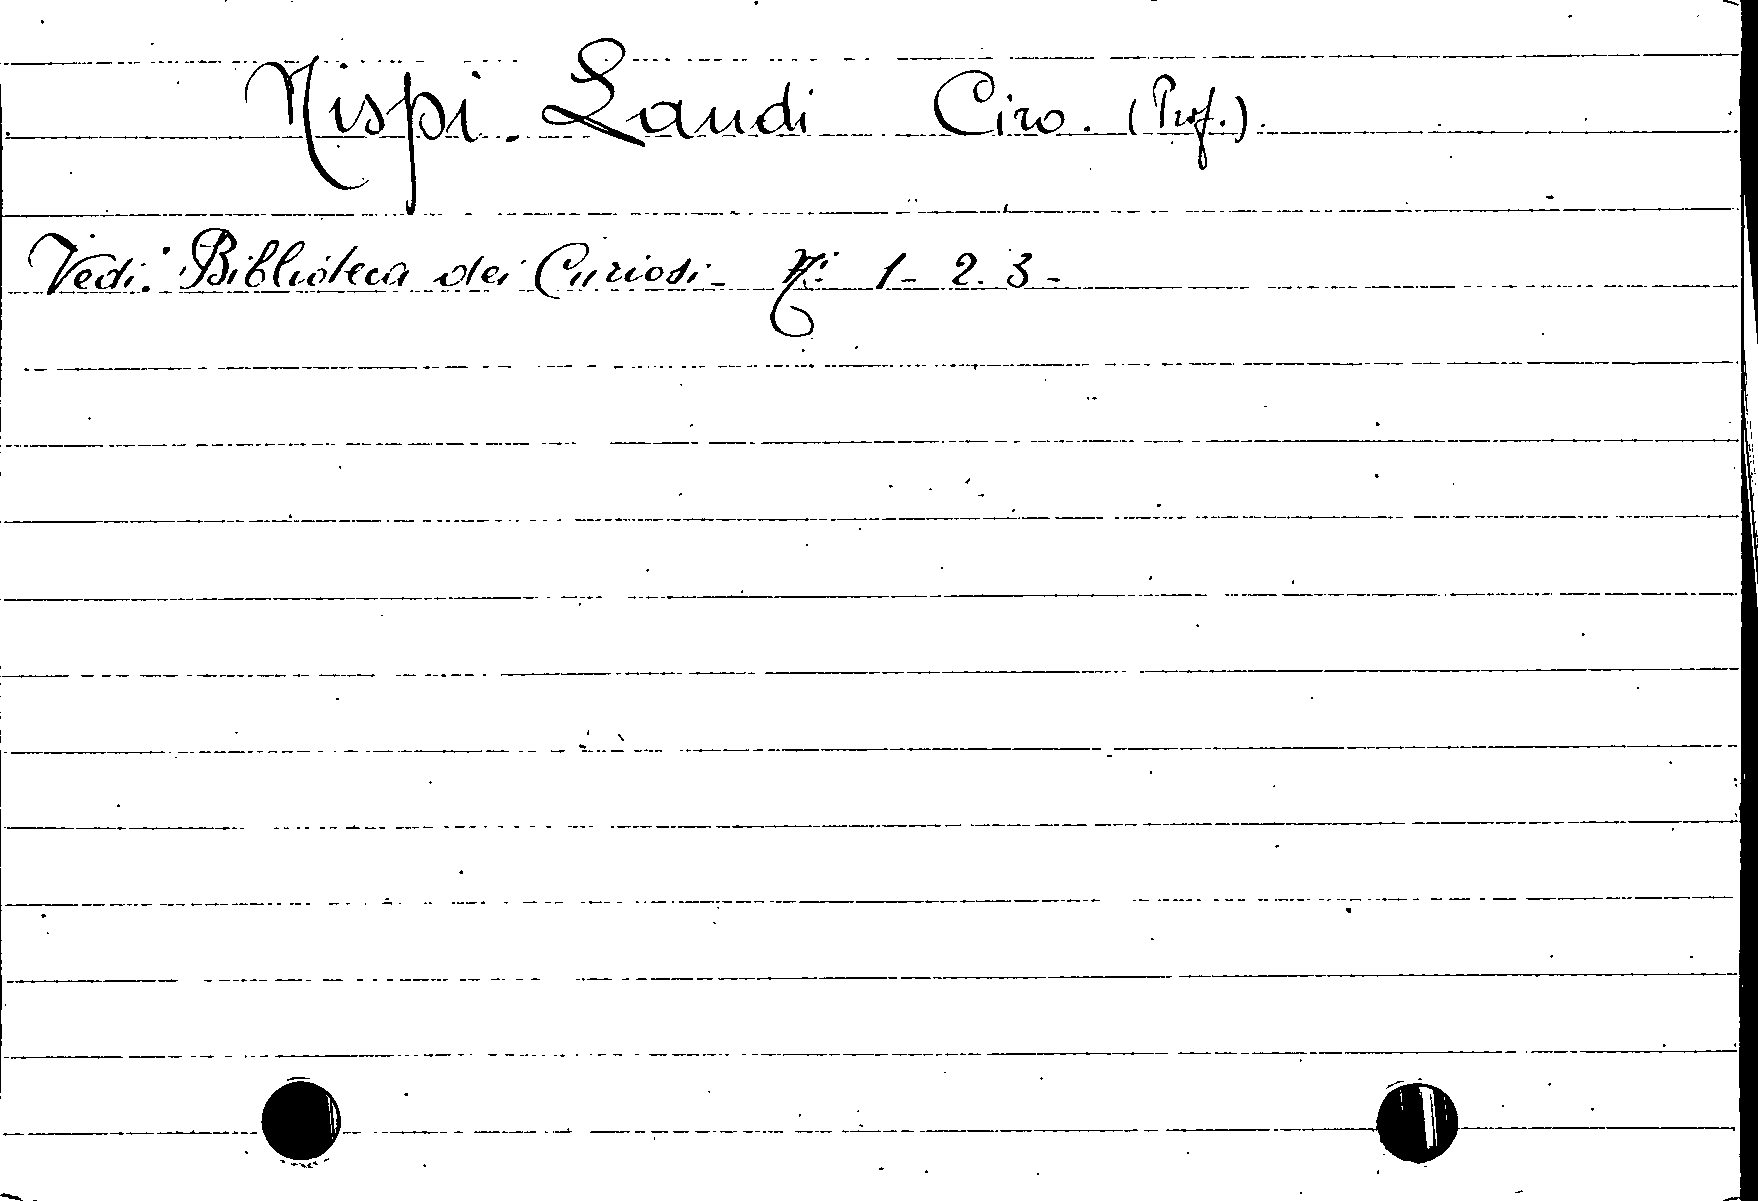 Nispi. Landi Ciro. (Prof.).
Vedi: Biblioteca dei Curiosi - Ni 1 - 2. 3 -